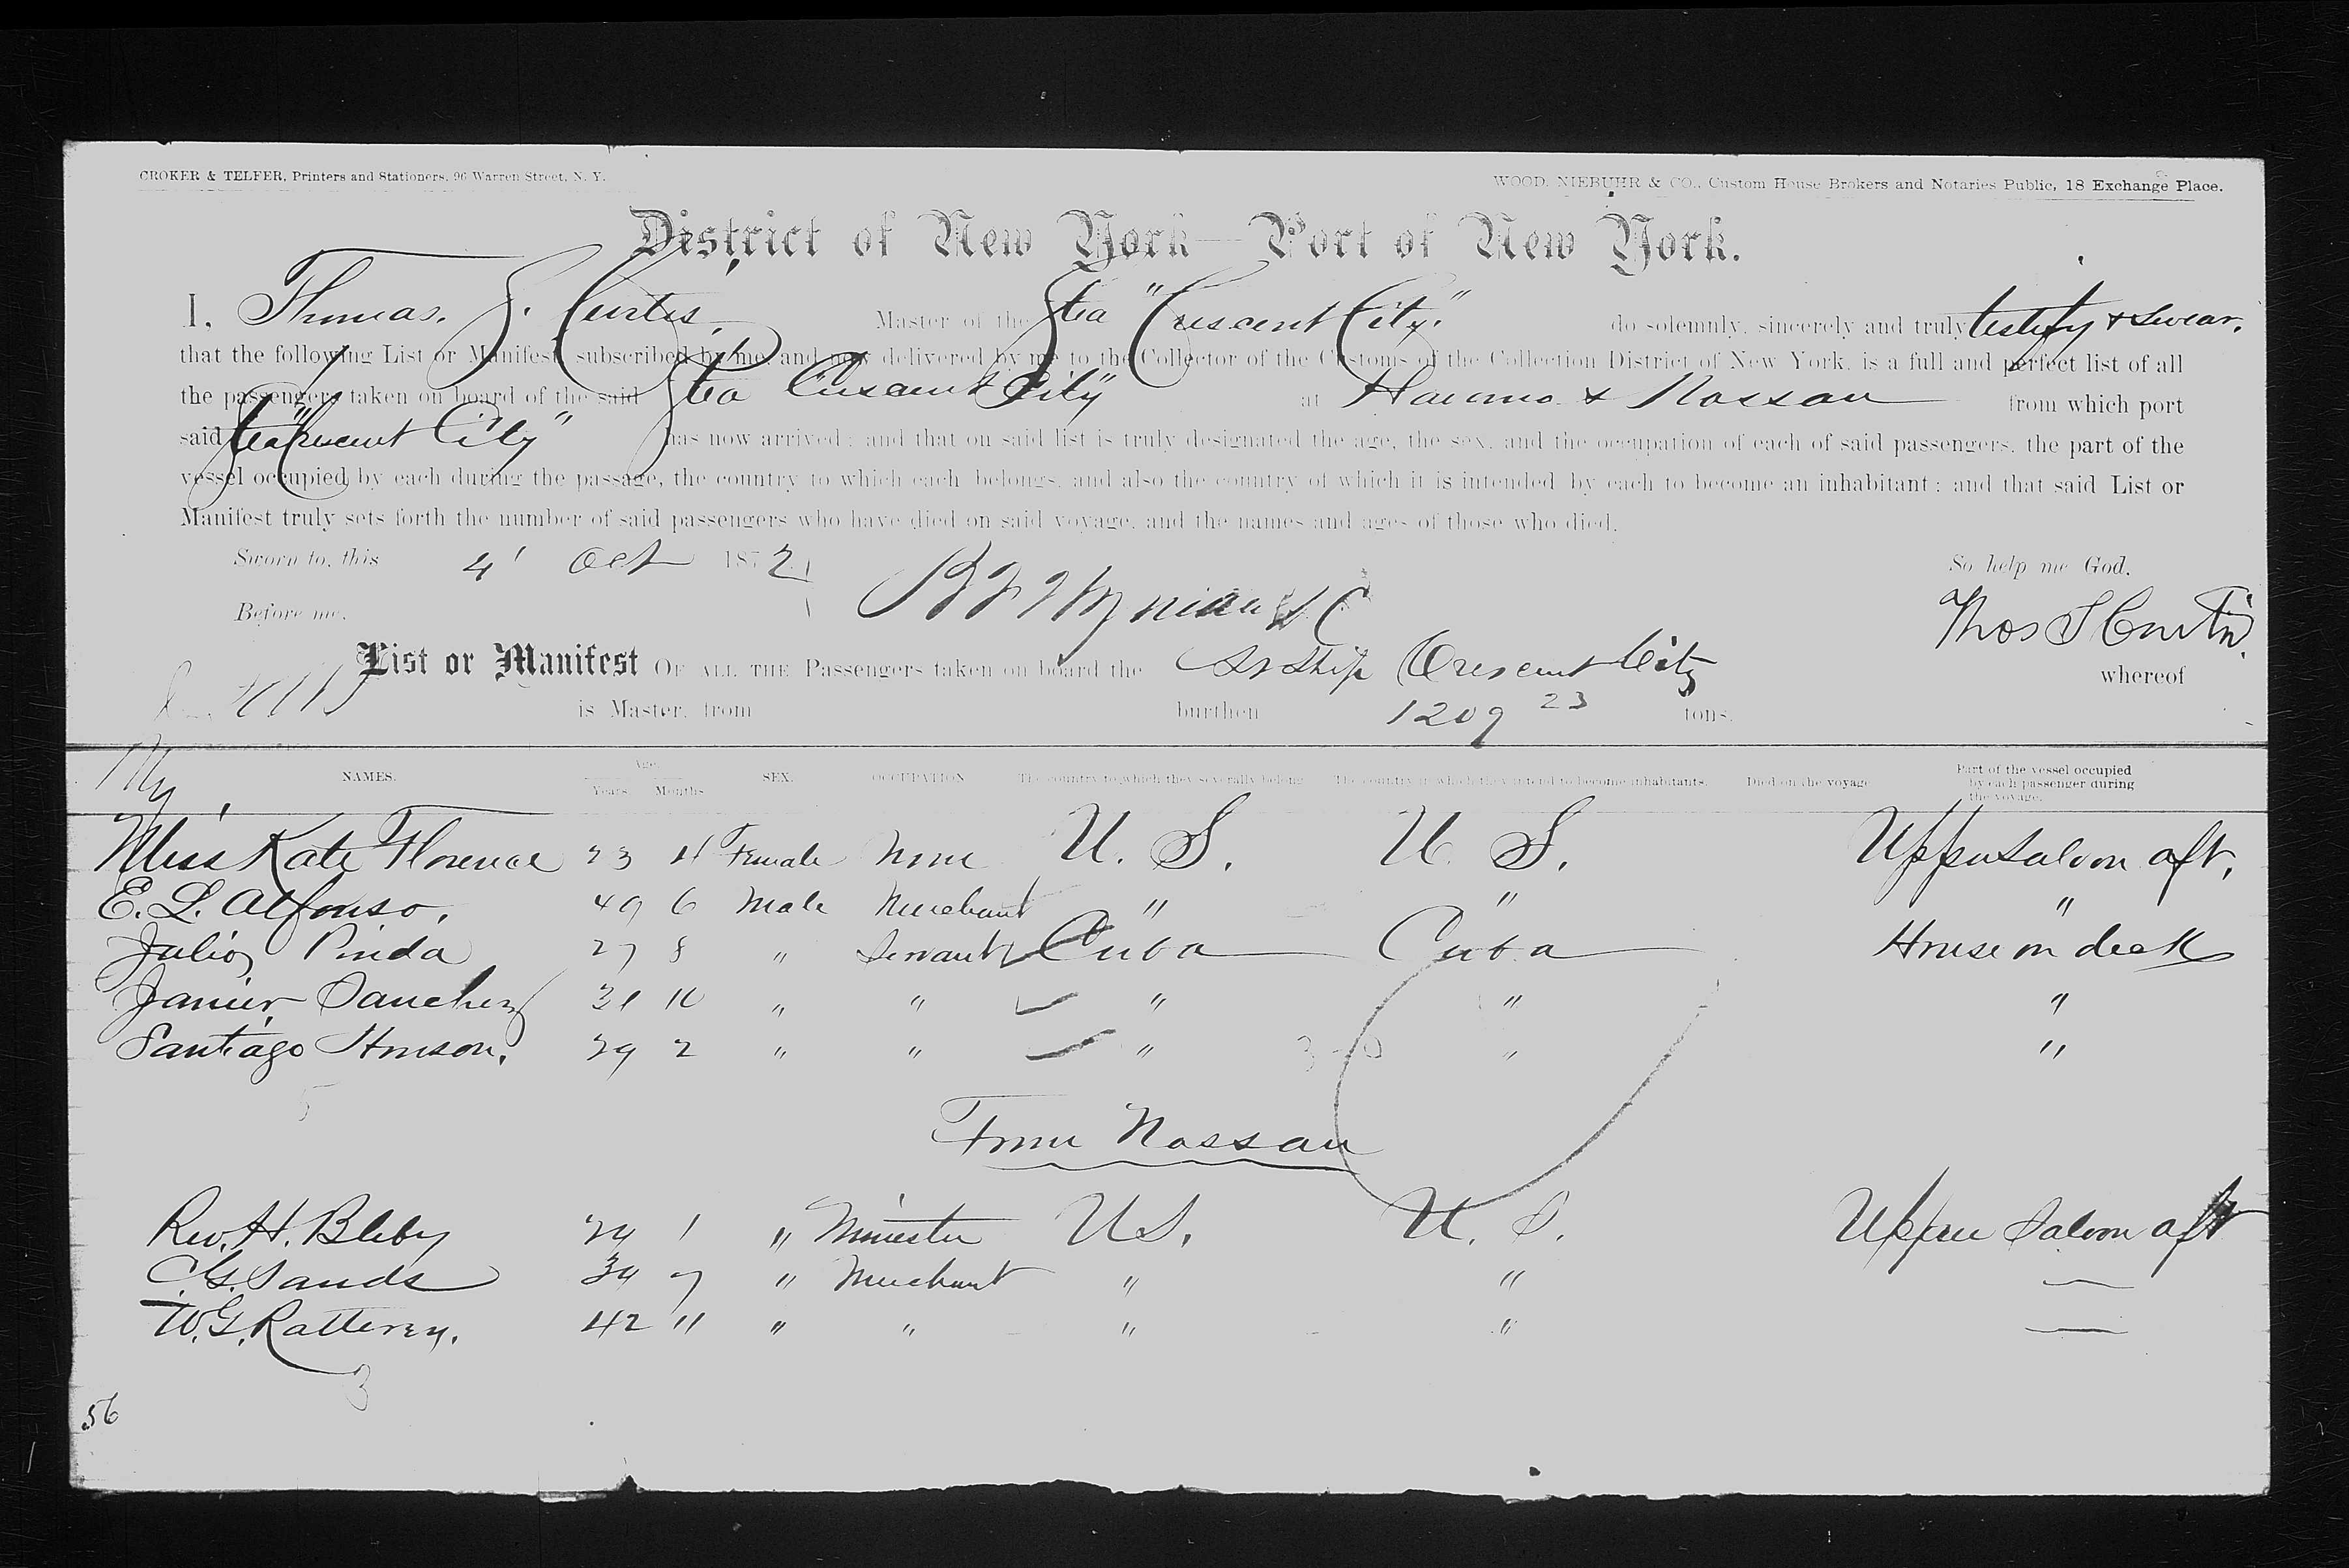 CROKER & TELFER, Printers and Stationers, 96 Warren Street, N. Y.
WOOD, NIEBUHR & CO., Custom House Brokers and Notaries Public, 18 Exchange Place.
District of New York—Port of New York.
I, Thomas. S. Curtis, Master of the Str "Crescent City." do solemnly, sincerely and truly testify & swear,
that the following List or Manifest subscribed by me, and now delivered by me to the Collector of the Customs of the Collection District of New York, is a full and perfect list of all
the passengers taken on board of the said Str Crescent City" at Havana & Nassau from which port
said Str "Crescent City" has now arrived; and that on said list is truly designated the age, the sex, and the occupation of each of said passengers, the part of the
vessel occupied by each during the passage, the country to which each belongs, and also the country of which it is intended by each to become an inhabitant; and that said List or
Manifest truly sets forth the number of said passengers who have died on said voyage, and the names and ages of those who died.
Sworn to, this 4' Oct 1872 So help me God.
Before me, Thos S Curtis.
List or Manifest OF ALL THE Passengers taken on board the St Ship Crescent City whereof
is Master, from burthen 1209 23 tons.
NAMES. Age. Years Months SEX. OCCUPATION The country to which they severally belong The country in which they intend to become inhabitants. Died on the voyage Part of the vessel occupied by each passenger during the voyage.
Miss Kate Florence 23 4 Female None U. S. U. S. Upper Saloon aft,
E. L. Alfonso, 49 6 Male Merchant " " "
Julio Pinda 27 8 " Servant Cuba Cuba House on deck
Janier Sanchez 31 10 " " " " "
Santiago Hnson. 29 2 " " " " "
5
From Nassau
Rev. H. Bleby 29 1 " Minister U S. U. S. Upper Saloon aft
C. G. Sands 34 7 " Merchant " "
W. G. Ratterey. 42 " " " " "
3
56